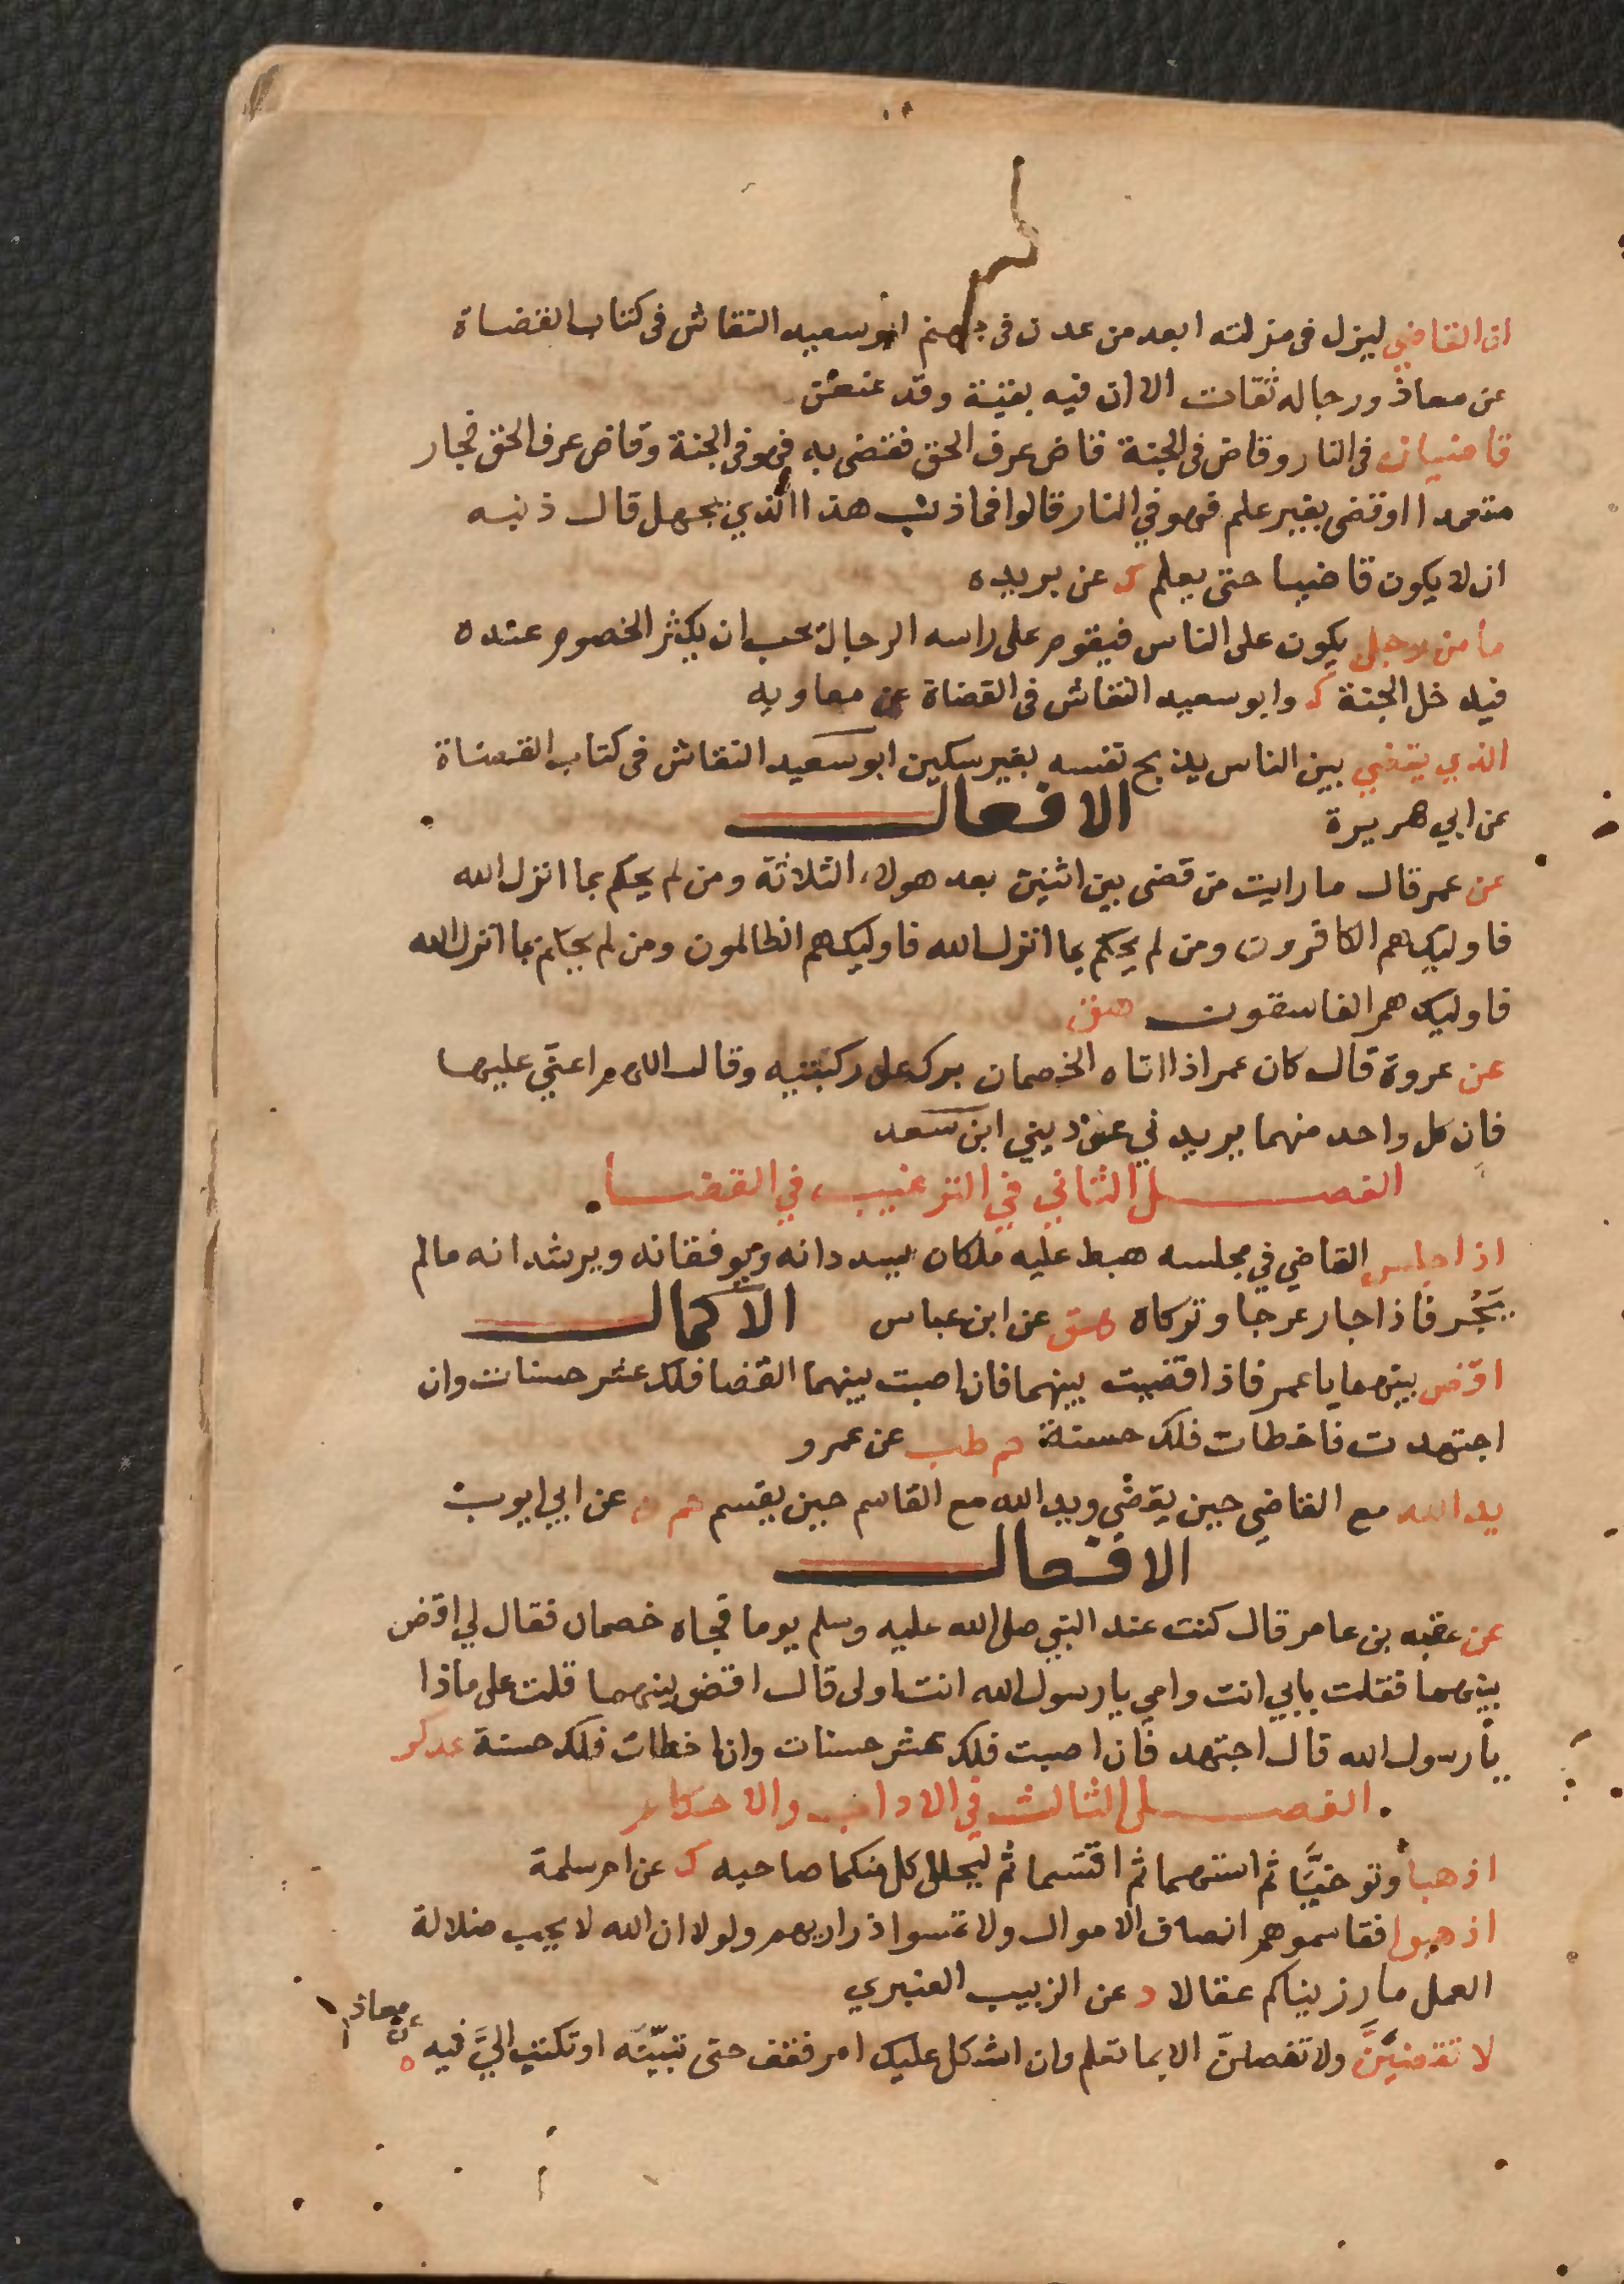 ان القاضي ليزل فى مزلته ابعد من عدن فى جهنم ابو سعيد النقاش فى كتاب القضاة
عن معاذ ورجاله ثقات الا ان فيه بقية وقد عنعن
قاضيان فى النار وقاض فى الجنة قاض عرف الحق فقضى به فهو فى الجنة وقاض عرف الحق فجار
متعمدا او قضى بغير علم فهو في النار قالوا فما ذنب هذا الذي يجهل قال ذنبه
ان لا يكون قاضيا حتى يعلم ك عن بريده
ما من رجل يكون على الناس فيقوم على راسه الرجال يحب ان يكثر الخصوم عنده
فيدخل الجنة ك وابو سعيد النقاش فى القضاة عن معاويه
الذي يقضي بين الناس يذبح نفسه بغير سكين ابو سعيد النقاش فى كتاب القضاة
عن ابي هريرة الافعال
عن عمر قال ما رايت من قضى بين اثنين بعد هولاء الثلاثة ومن لم يحكم بما انزل الله
فاوليك هم الكافرون ومن لم يحكم بما انزل الله فاوليك هم الظالمون ومن لم يحكم بما انزل الله
فاوليك هم الفاسقون هق
عن عروة قال كان عمر اذا اتاه الخصمان برك على ركبتيه وقال اللهم اعني عليهما
فان كل واحد منهما يريدني عن ديني ابن سعد
الفصل الثاني في الترغيب في القضا
اذا جلس القاضي في مجلسه هبط عليه ملكان يسددانه ويوفقانه ويرشدانه مالم
يَجُر فاذا جار عرجا وتركاه هق عن ابن عباس الاكمال
اقض بينهما يا عمر فاذا قضيت بينهما فان اصبت بينهما القضا فلك عشر حسنات وان
اجتهدت فاخطات فلك حسنة حم طب عن عمرو
يد الله مع القاضي حين يقضي ويد الله مع القاسم حين يقسم حم عن ابي ايوب
الافعال
عن عقبه بن عامر قال كنت عند النبي صلى الله عليه وسلم يوما فجاه خصمان فقال لي اقض
بينهما فقلت بابي انت وامي يا رسول الله انت اولى قال اقض بينهما قلت على ماذا
يا رسول الله قال اجتهد فان اصبت فلك عشر حسنات وان اخطات فلك حسنة عد كر
الفصل الثالث في الاداب والاحكام
اذهبا وتوخيَّا ثم استهما ثم اقتسما ثم ليحلل كل منكما صاحبه ك عن ام سلمة
اذهبوا فقاسموهم انصاف الاموال ولا تمسوا ذراريهم ولولا ان الله لا يحب ضلالة
العمل ما رزيناكم عقالا د عن الزبيب العنبري
لا تقضينَّ ولا تفصلنّ الا بما تعلم وان اشكل عليك امر فقف حتى تبيّنه او تكتب اليَّ فيه ه
عن معاذ